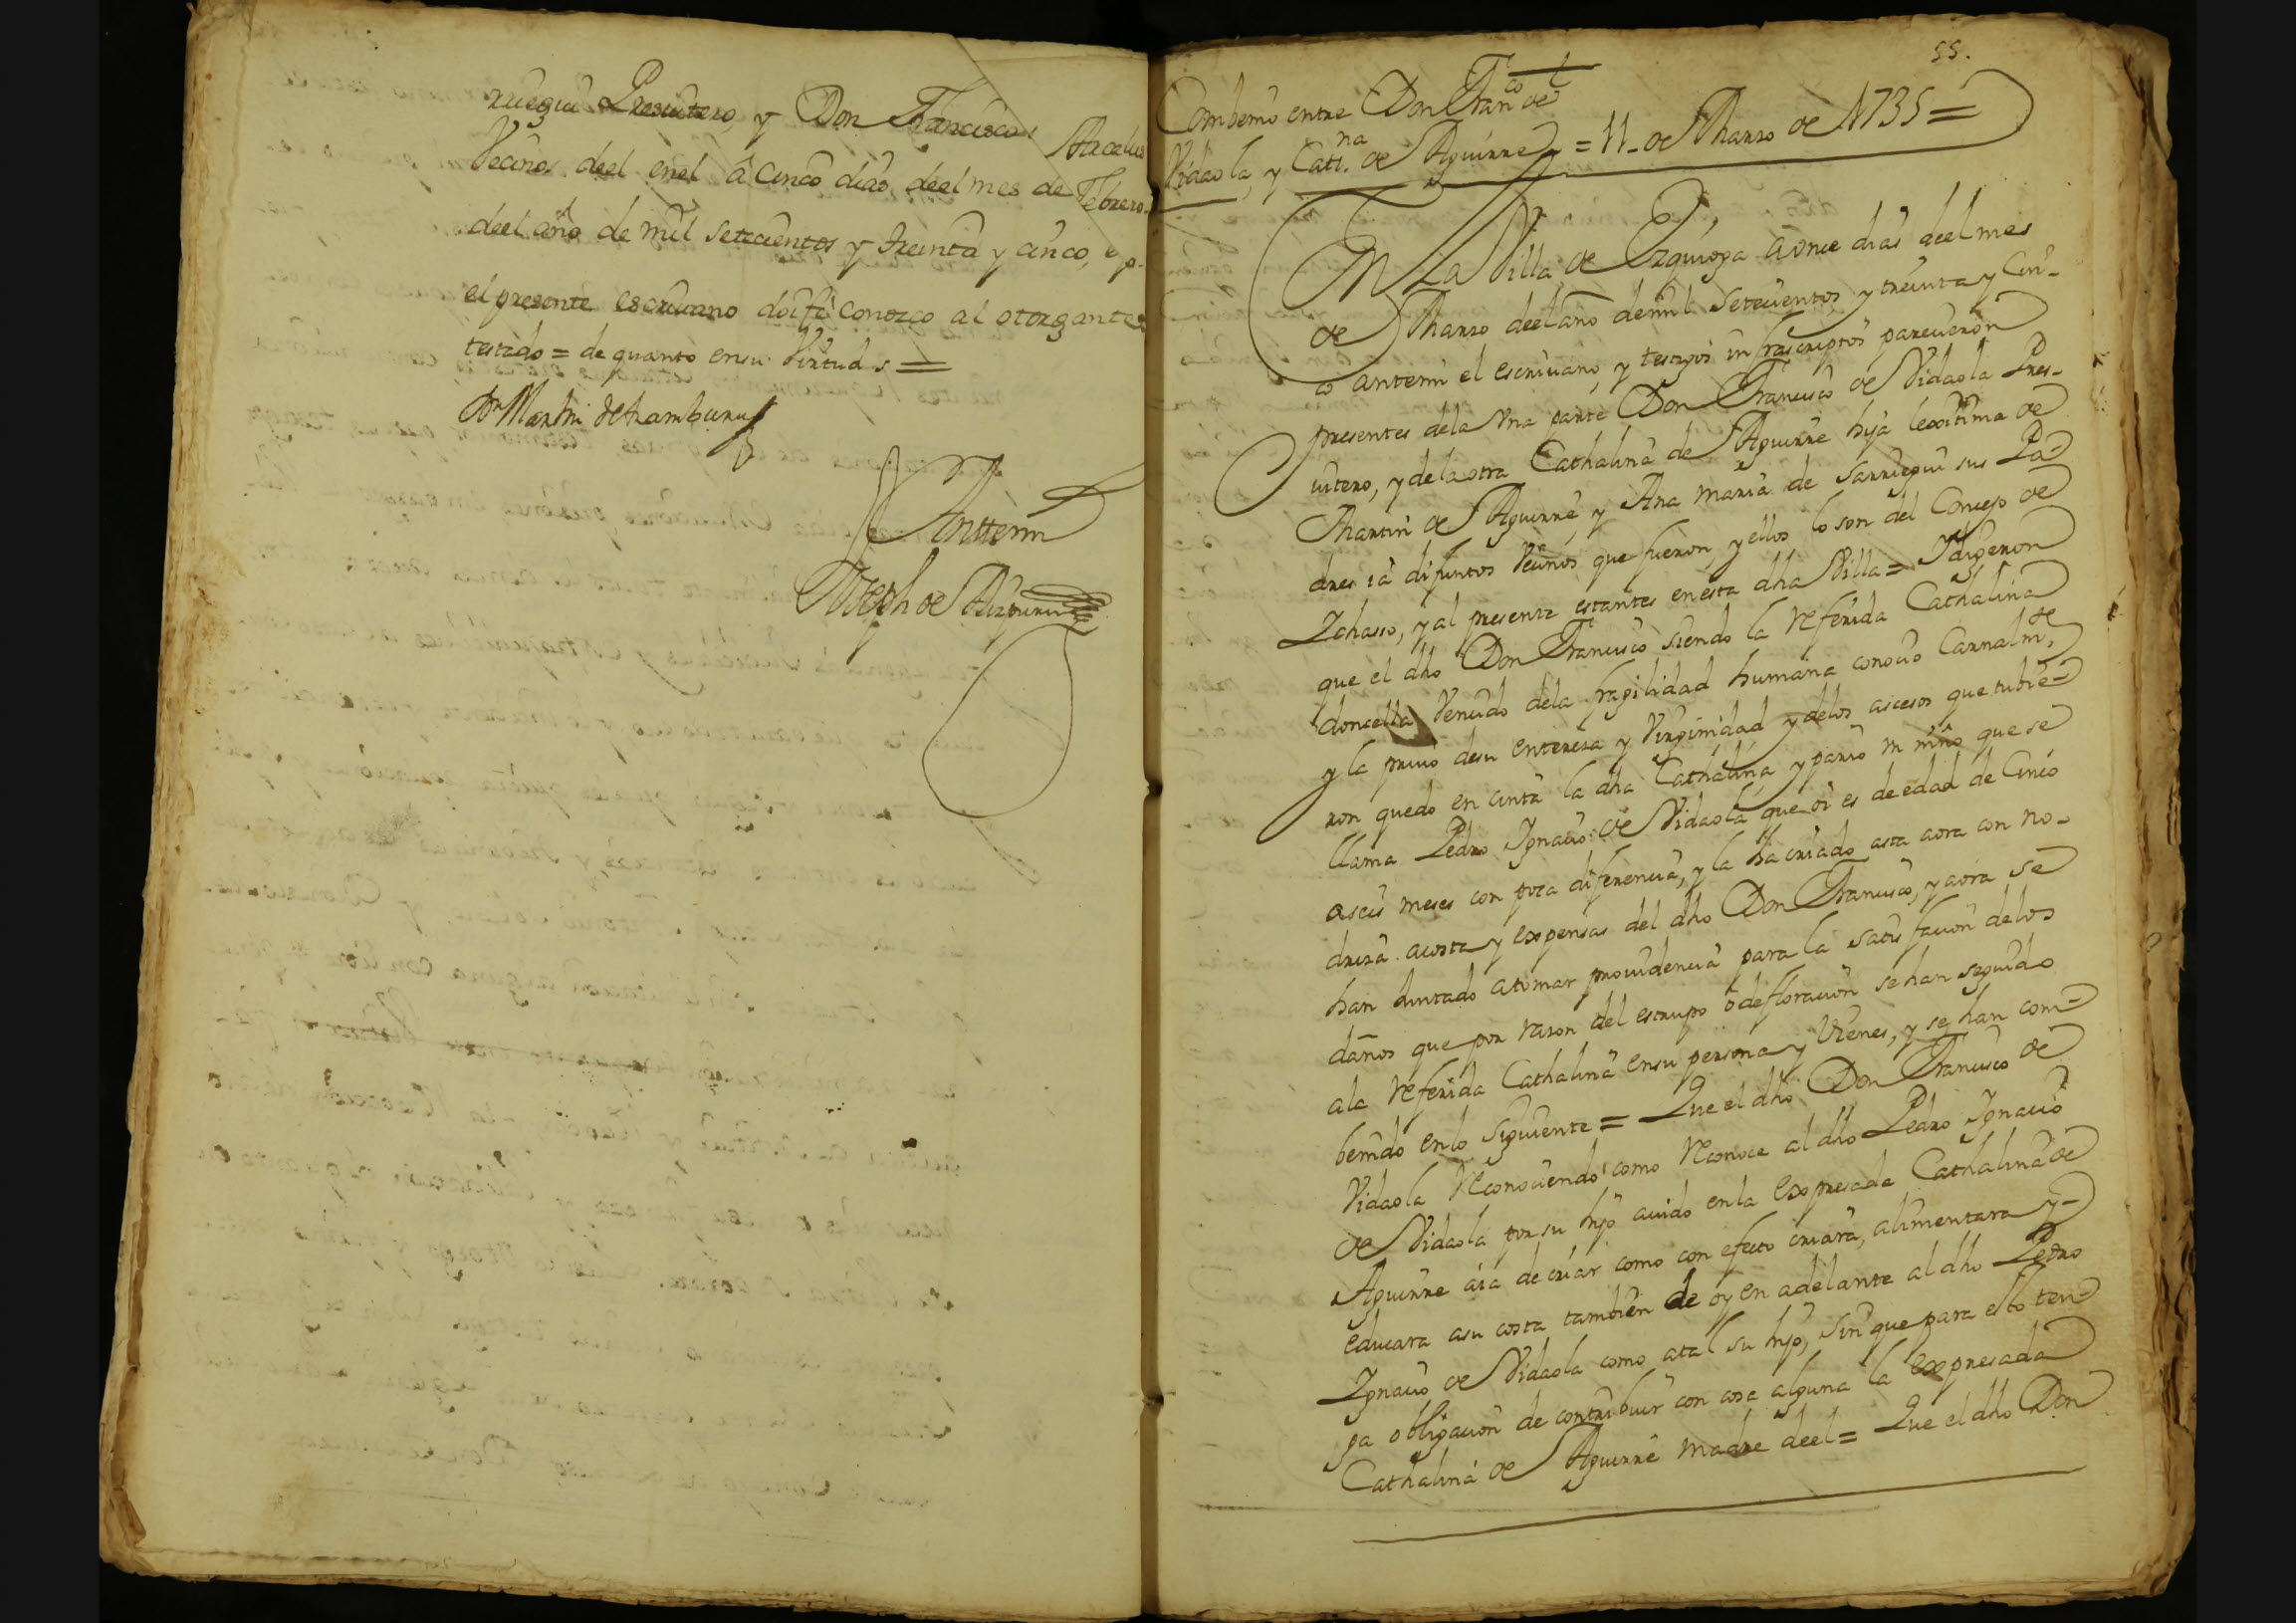 rruegui Presvitero, y Don Francisco Arcelus
Vecinos deel enel â cinco dias deel mes de Febrero
deel año de mil setecientos y treinta y cinco, e yo
el presente escrivano doi fe conozco al otorgante
testado = de quanto ensu Virtud s =
Dn Martin de Aramburu
Anttemi
Joseph de Aizpuru
55.
Combenio entre Don Franco de
Vidaola, y Catna de Aguirre = 11 de Marzo de 1735 =
En La Villa de Ezquioga a once dias deel mes
de Marzo deel año demil Setecientos y treinta y Cin-
co antemi el escriviano, y testigos infrascriptos parecieron
presentes dela Una parte Don Francisco de Vidaola Pres-
vitero, y dela otra Cathalina de Aguirre hija lexitima de
Martin de Aguirre, y Ana maria de Sarriegui sus Pa-
dres ia difuntos Vecinos que fueron, y ellos lo son del Concejo de
Ichasso, y al presente estantes enesta dha Villa = Y digeron
que el dho Don Francisco siendo la referida Cathalina
doncella Vencido dela fragilidad humana conocio Carnalmte,
y la privo desu entereza y Virginidad y delos accesos que tubie-
ron quedo en cinta la dha Cathalina, y pario un niño que se
llama Pedro Ignacio de Vidaola que oi es de edad de Cinco
a seis meses con poca diferencia, y la ha criado asta aora con no-
driza acosta y expensas del dho Don Francisco, y aora se
han Juntado atomar providencia para la satisfacion delos
daños que por razon del estrupo o defloracion se han seguido
ala referida Cathalina ensu persona y Vienes, y se han com-
benido enlo siguiente = Que el dho Don Francisco de
Vidaola reconociendo como reconoce al dho Pedro Ignacio
de Vidaola por su hijo avido enla expresada Cathalina de
Aguirre aia de criar como con efecto criara, alimentara y-
educara asu costa tambien de oy en adelante al dho Pedro
Ignacio de Vidaola como atal su hijo, sin que para esto ten-
ga obligacion de contribuir con cosa alguna la expresada
Cathalina de Aguirre madre deel = Que el dho Don